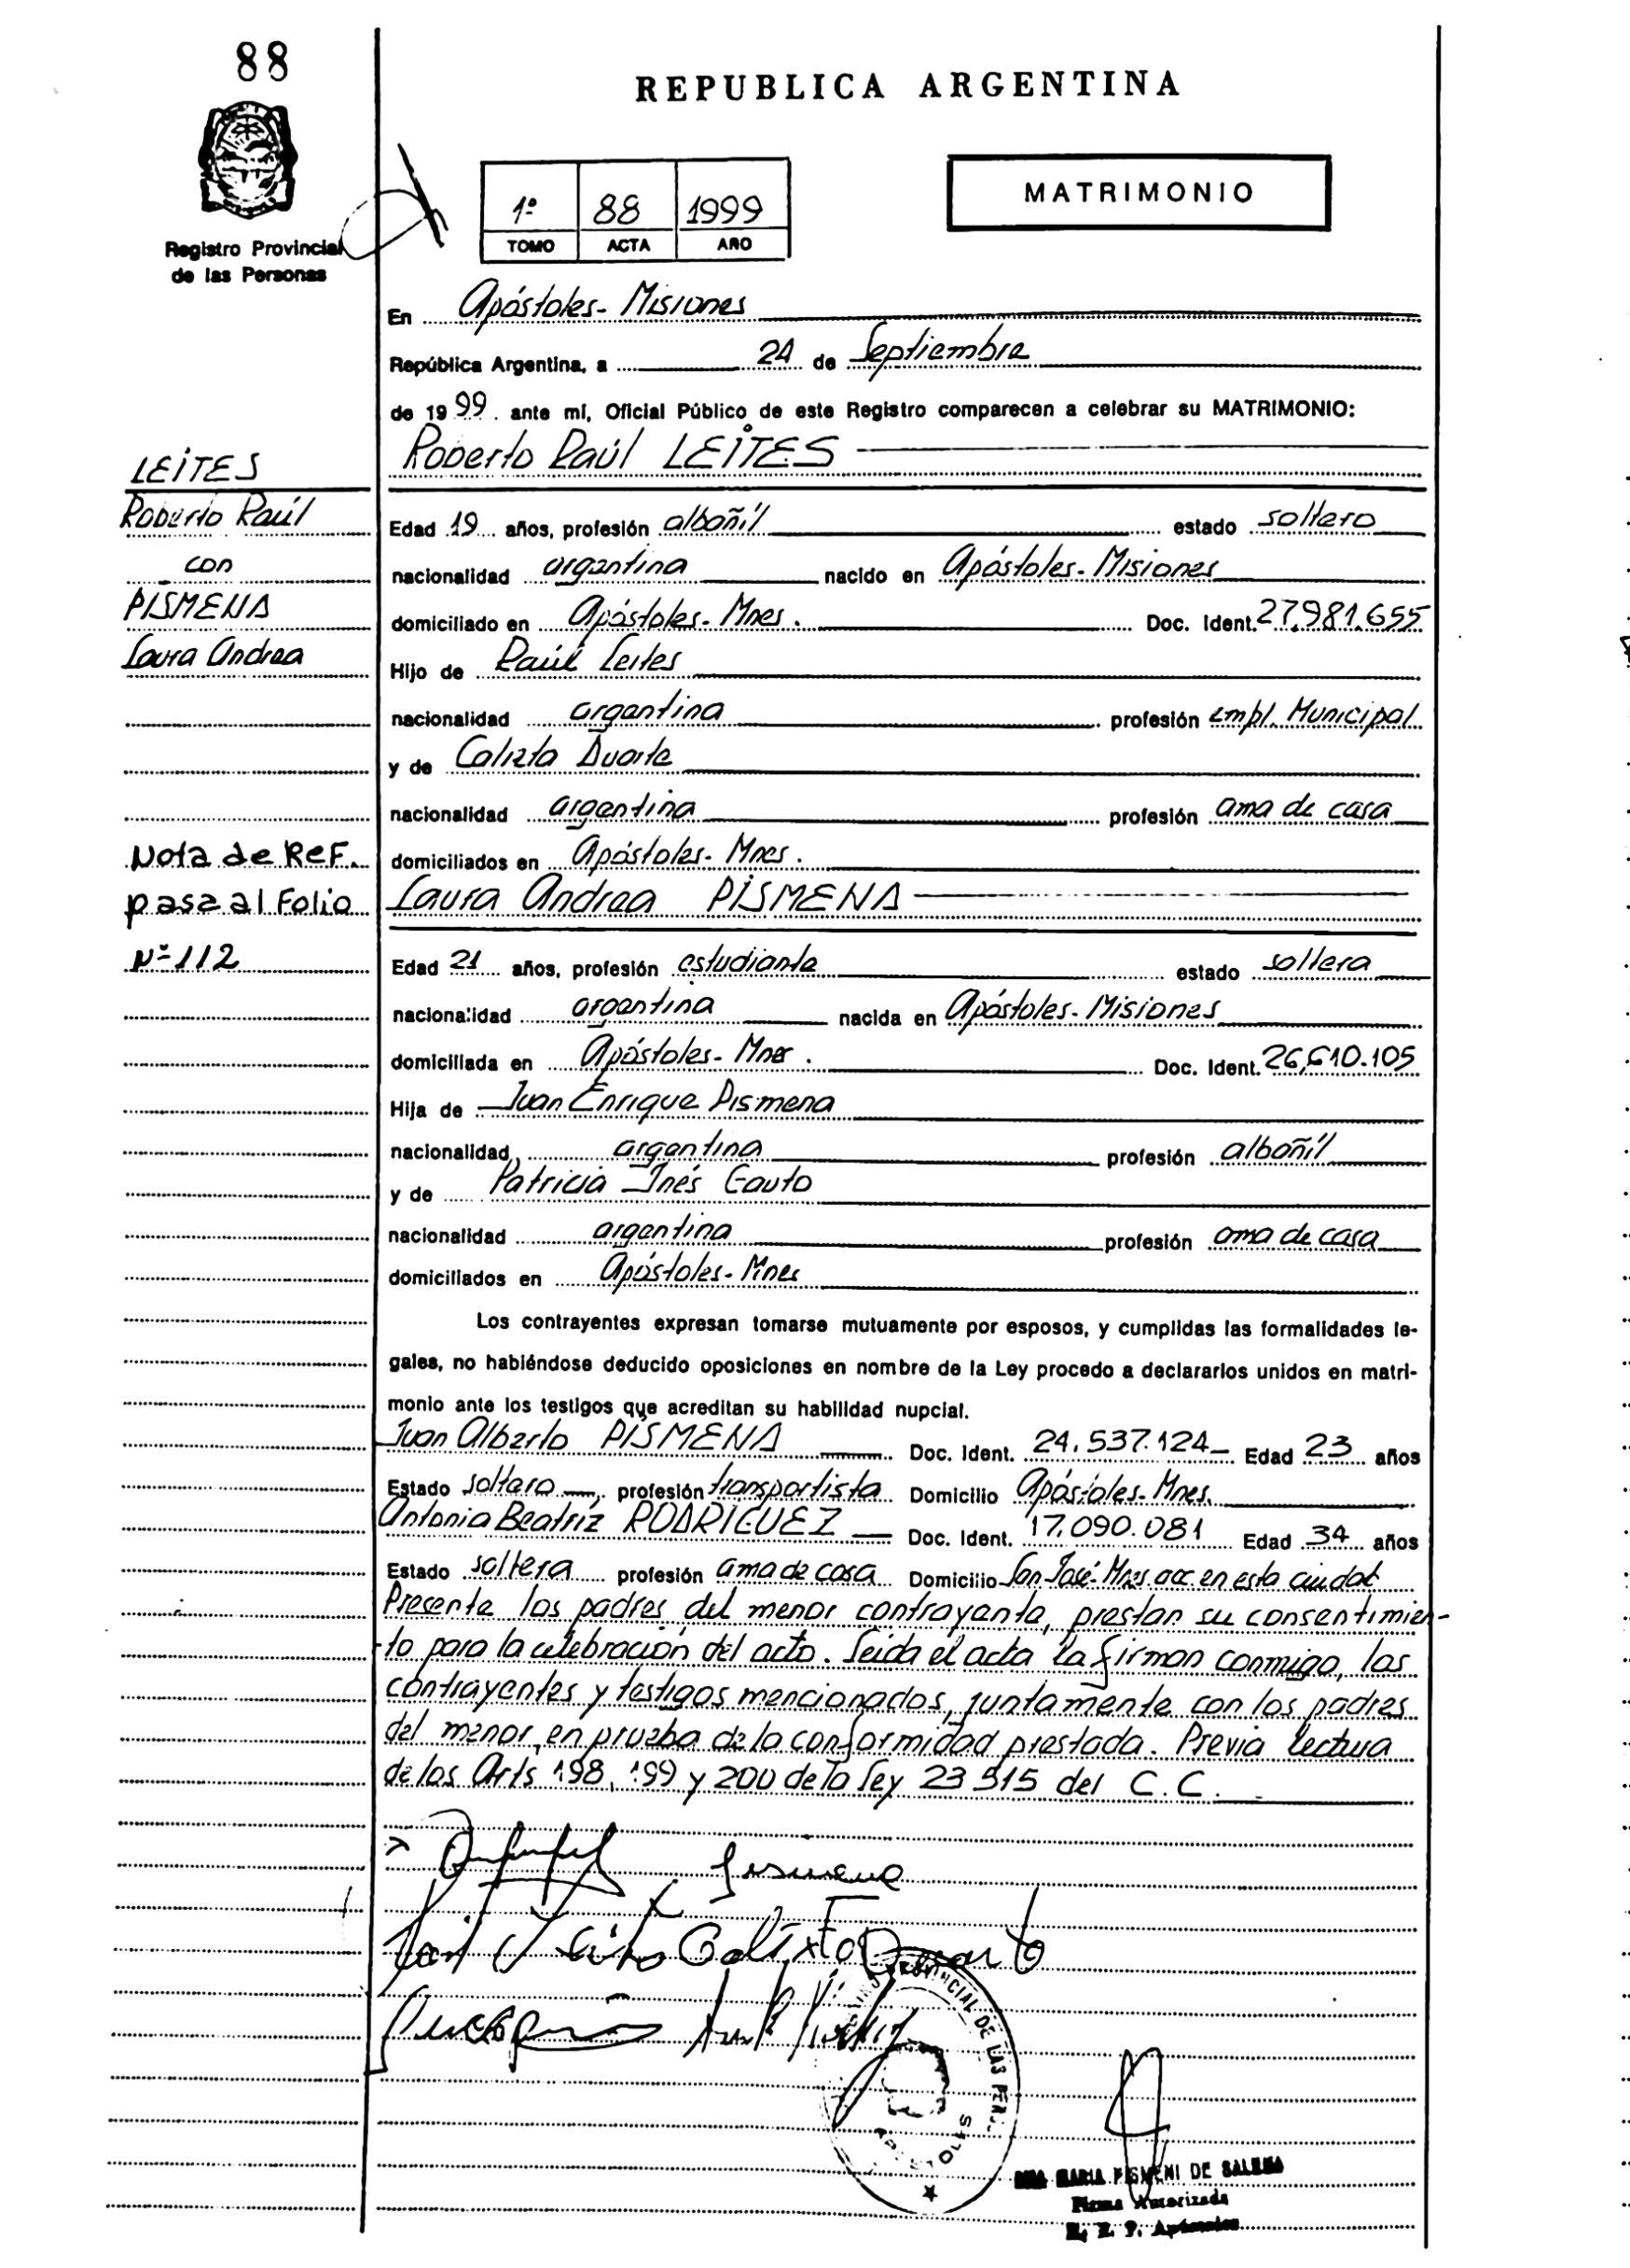 88
REPUBLICA ARGENTINA
MATRIMONIO
1º 88 1999
TOMO ACTA AÑO
Registro Provincial
de las Personas
En Apóstoles - Misiones
República Argentina, a 24 de Septiembre
de 1999 ante mí, Oficial Público de este Registro comparecen a celebrar su MATRIMONIO:
Roberto Raúl LEITES
LEITES
Roberto Raúl
con
PISMENA
Laura Andrea
Edad 19 años, profesión albañil estado soltero
nacionalidad argentina nacido en Apóstoles - Misiones
domiciliado en Apóstoles - Mnes. Doc. Ident. 27.981.655
Hijo de Raúl Leites
nacionalidad argentina profesión empl. Municipal
y de Calixta Duarte
nacionalidad argentina profesión ama de casa
domiciliados en Apóstoles - Mnes.
Nota de ReF.
pasa al Folio
Nº 112
Laura Andrea PISMENA
Edad 21 años, profesión estudiante estado soltera
nacionalidad argentina nacida en Apóstoles - Misiones
domiciliada en Apóstoles - Mnes. Doc. Ident. 26.610.105
Hija de Juan Enrique Pismena
nacionalidad argentina profesión albañil
y de Patricia Inés Gauto
nacionalidad argentina profesión ama de casa
domiciliados en Apóstoles - Mnes
Los contrayentes expresan tomarse mutuamente por esposos, y cumplidas las formalidades le-
gales, no habiéndose deducido oposiciones en nombre de la Ley procedo a declararlos unidos en matri-
monio ante los testigos que acreditan su habilidad nupcial.
Juan Alberto PISMENA Doc. Ident. 24.537.124 Edad 23 años
Estado soltero profesión transportista Domicilio Apóstoles - Mnes.
Antonia Beatriz RODRIGUEZ Doc. Ident. 17.090.081 Edad 34 años
Estado soltera profesión ama de casa Domicilio San José - Mnes acc en esta ciudad
Presente los padres del menor contrayente, prestan su consentimien-
to para la celebración del acto. Leida el acta la firman conmigo, los
contrayentes y testigos mencionados, juntamente con los padres
del menor, en prueba de la conformidad prestada. Previa lectura
de los Arts 198, 199 y 200 de la Ley 23 515 del C. C.
Pismena
Calixta Duarte
PROVINCIAL DE LAS PERS.
MARIA PISMENI DE
Firma Autorizada
R. P. Apóstoles